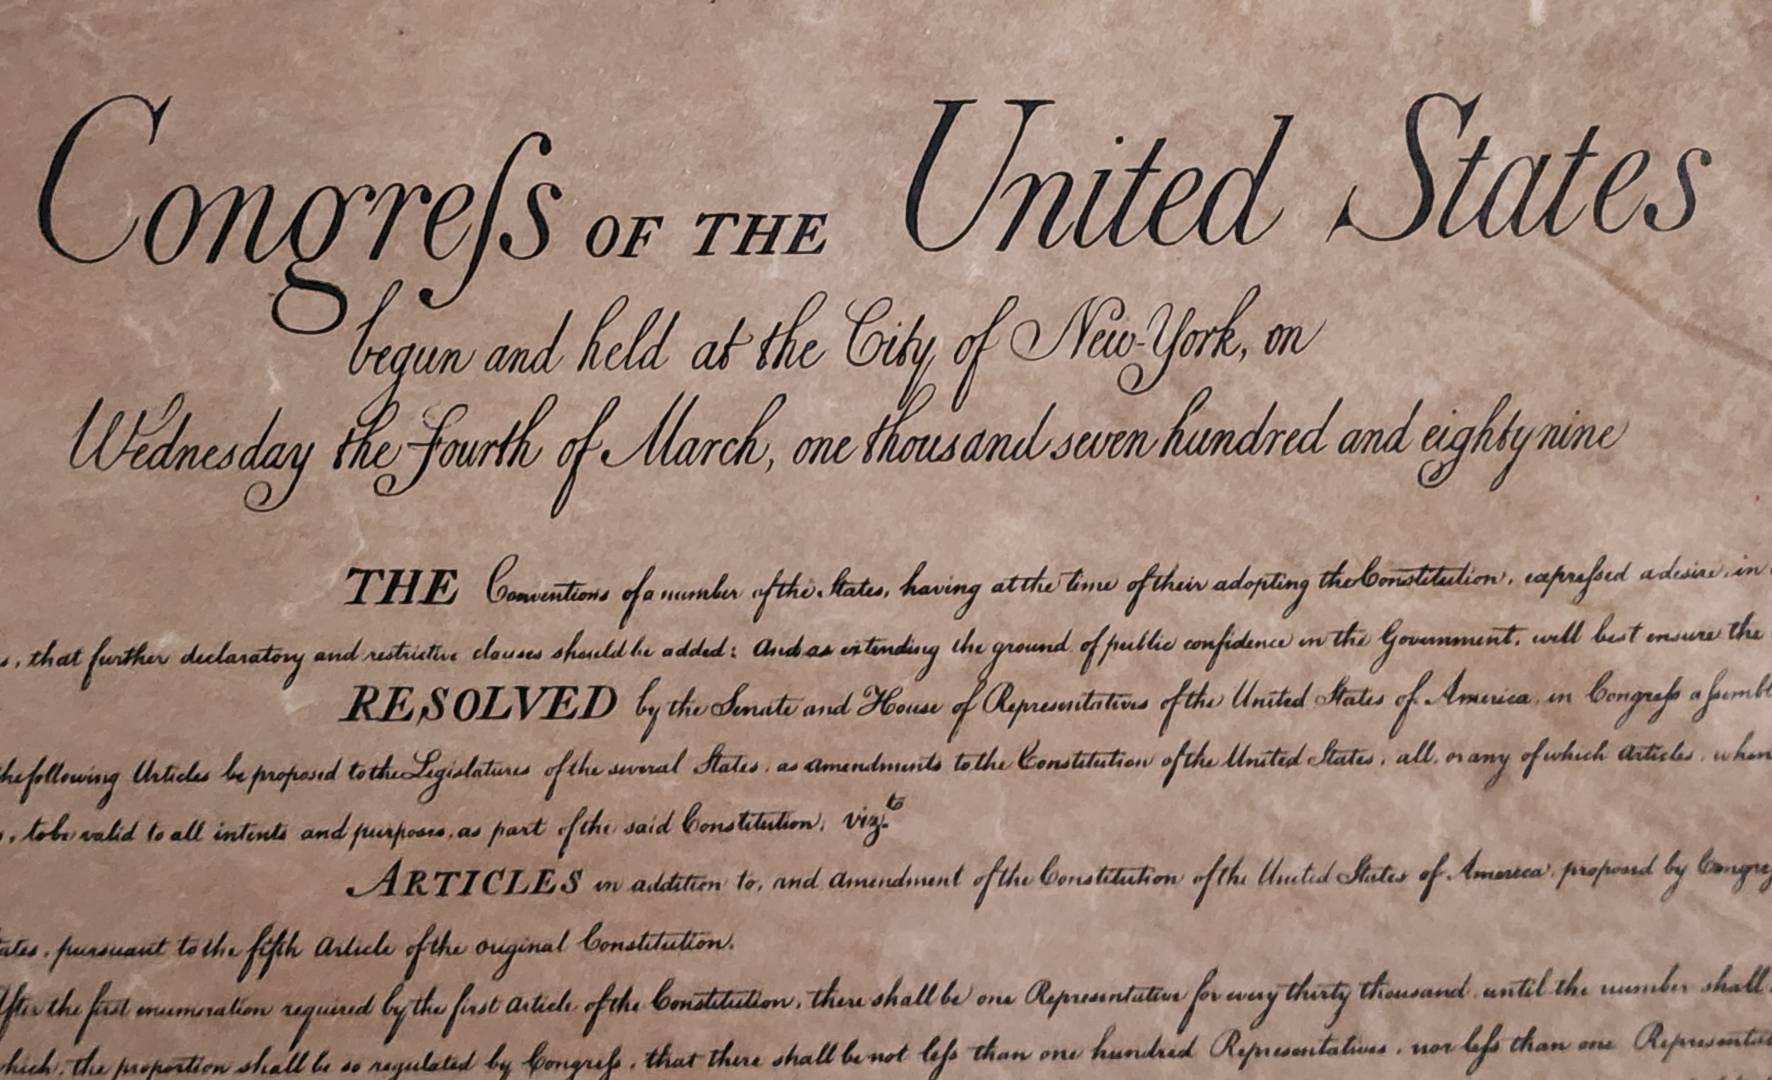 Congreſs OF THE United States
begun and held at the City of New-York, on
Wednesday the Fourth of March, one thousand seven hundred and eighty nine
THE Conventions of a number of the States, having at the time of their adopting the Constitution, expreſsed a desire, in
s, that further declaratory and restrictive clauses should be added: And as extending the ground of public confidence in the Government, will best ensure the
RESOLVED by the Senate and House of Representatives of the United States of America, in Congreſs aſsembl
the following Articles be proposed to the Legislatures of the several States, as amendments to the Constitution of the United States, all, or any of which Articles, when
s, to be valid to all intents and purposes, as part of the said Constitution; vizt.
ARTICLES in addition to, and Amendment of the Constitution of the United States of America, proposed by Congre
tates, pursuant to the fifth Article of the original Constitution.
After the first enumeration required by the first Article of the Constitution, there shall be one Representative for every thirty thousand, until the number shall
which, the proportion shall be so regulated by Congreſs, that there shall be not leſs than one hundred Representatives, nor leſs than one Representati